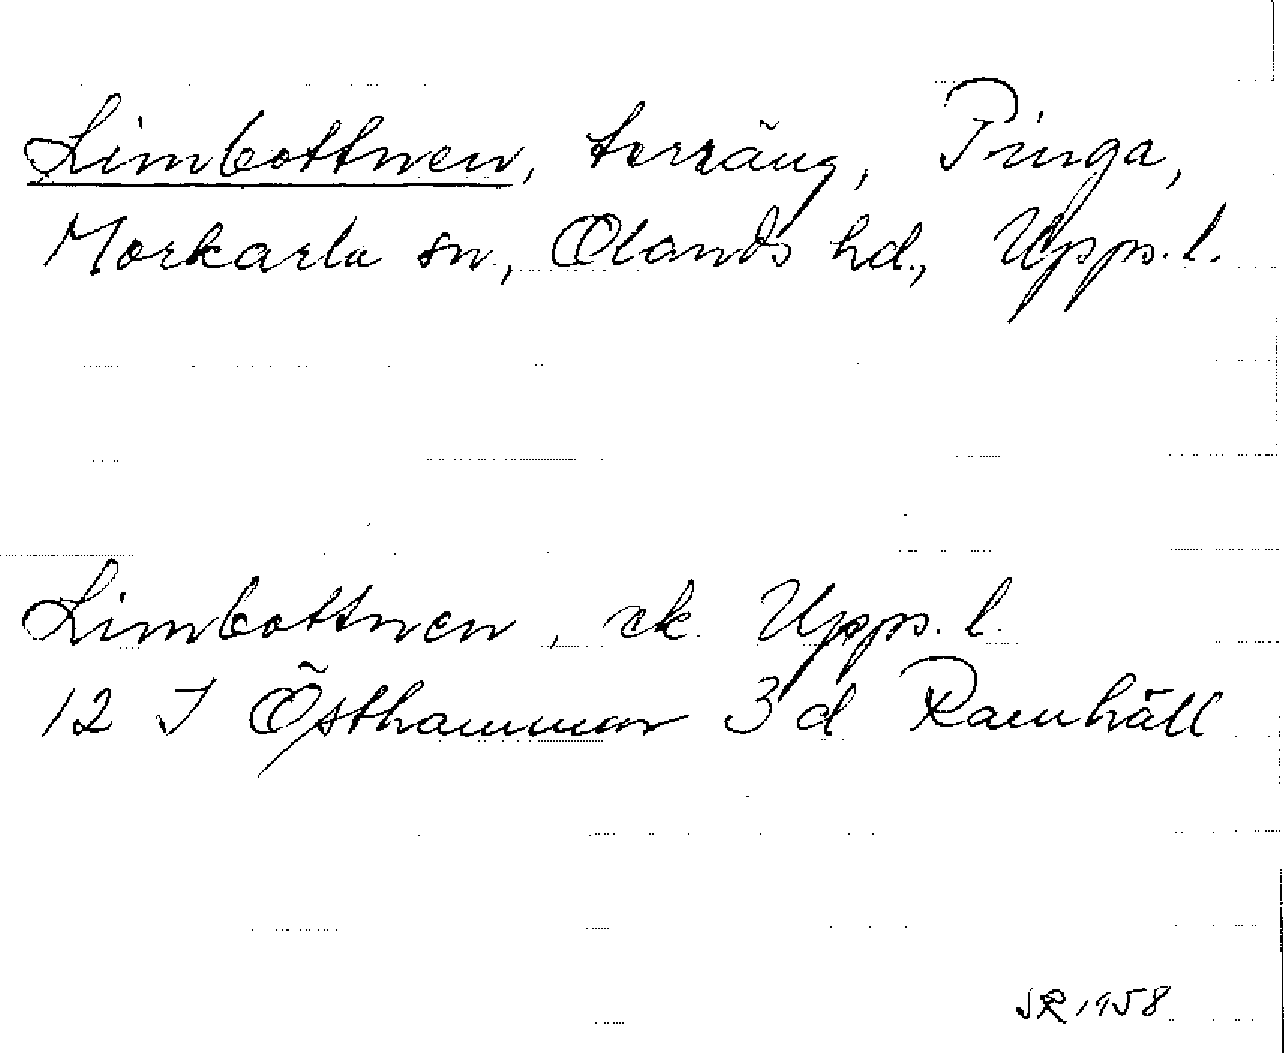 Limbottnen, terräng, Pringa,
Morkarla sn, Olands hd., Upps. l.
Limbottnen, ek. Upps. l.
12 I Östhammar 3 d Ramhäll
SR 1958